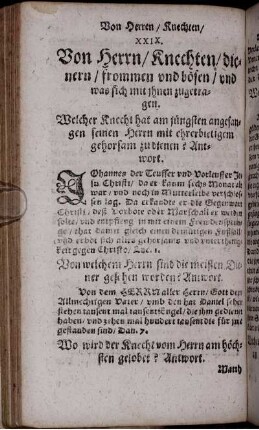 Von Herren/ Knechten/
XXIX.
Von Herrn/ Knechten/ die-
nern/ frommen vnd bösen/ vnd
was sich mit jhnen zugetra-
gen.
Welcher Knecht hat am jüngsten angefan-
gen seinen Herrn mit ehrerbietigem
gehorsam zu dienen? Ant-
wort.
JOhannes der Teuffer vnd Vorleuffer Je-
su Christi/ da er kaum sechs Monat alt
war/ vnd noch in Mutterleibe verschlos-
sen lag. Da erkandte er die Gegenwart
Christi/ deß Vorbote oder Marschall er werden
solte/ vnd empfieng jn mit einem Frewdensprun-
ge/ that damit gleich einen demütigen Fußfall
vnd erbot sich alles gehorsams vnd vnterthenig-
keit gegen Christo/ Luc. 1.
Von welchem Herrn sind die meisten Die-
ner gesehen worden? Antwort.
Von dem HERRN aller Herrn/ Gott dem
Allmechtigen Vater/ vmb den hat Daniel sehen
stehen tausent mal tausent Engel/ die jhm gedienet
haben/ vnd zehen mal hundert tausent die für jm
gestanden sind/ Dan. 7.
Wo wird der Knecht vom Herrn am höch-
sten gelobet? Antwort.
Wann